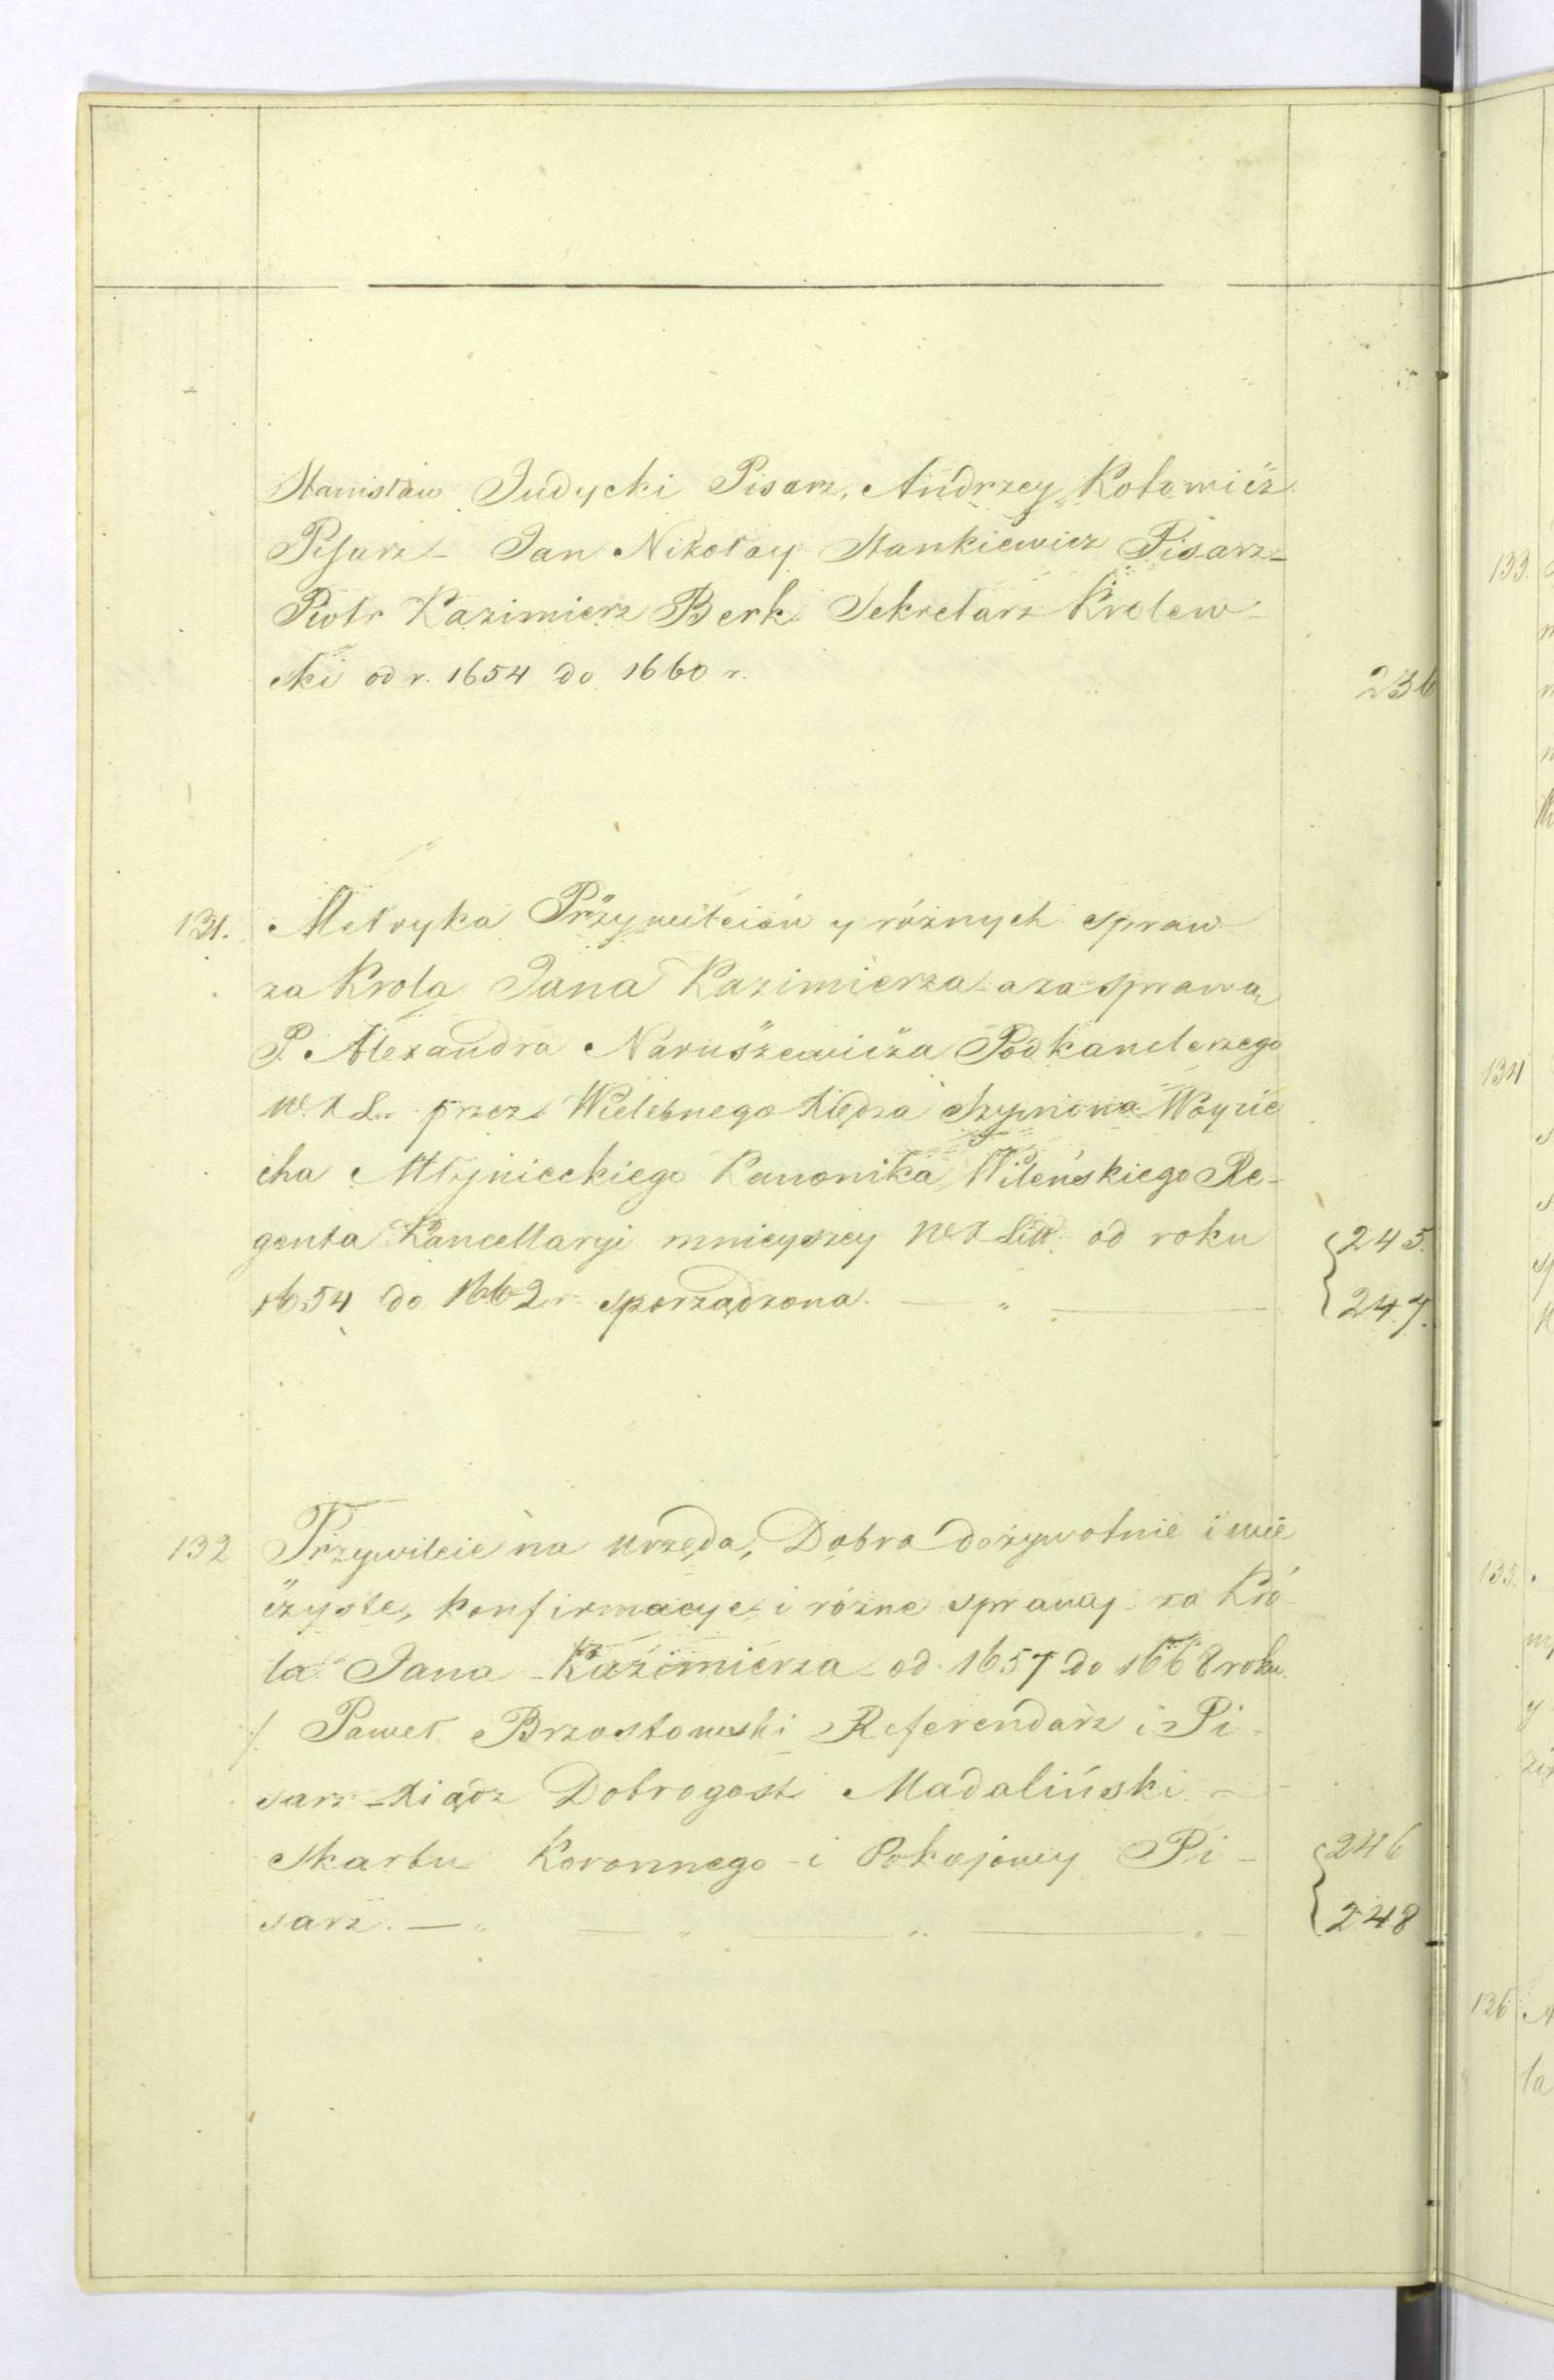 Stanisław Judycki Pisarz, Andrzey Kotowicz
Pisarz - Jan Nikołay Stankiewicz Pisarz -
Piotr Kazimierz Berk Sekretarz Krolew-
ski od r. 1654 do 1660 r. 236
131. Metryka Przywileiów y różnych spraw
za Krola Jana Kazimierza a za sprawą
P. Alexandra Naruszewicza Podkanclerzego
W. X L. przez Wielebnego Xiędza Szymona Woycie
cha Młynieckiego Kanonika Wileńskiego Re-
genta Kancellaryi mnieyszey W X Litt. od roku 245.
1654 do 1662 r sporządzona. 247.
132 Przywileie na urzęda, Dobra dożywotnie i wie
czyste, konfirmacye i różne sprawy za Kró-
la Jana Kazimierza od 1657 do 1668 roku
/. Paweł Brzostowski Referendarz i Pi-
sarz - Xiądz Dobrogost Madaliński -
Skarbu Koronnego - i Pokojowy Pi- 246
sarz. 248
133.
134
135.
136